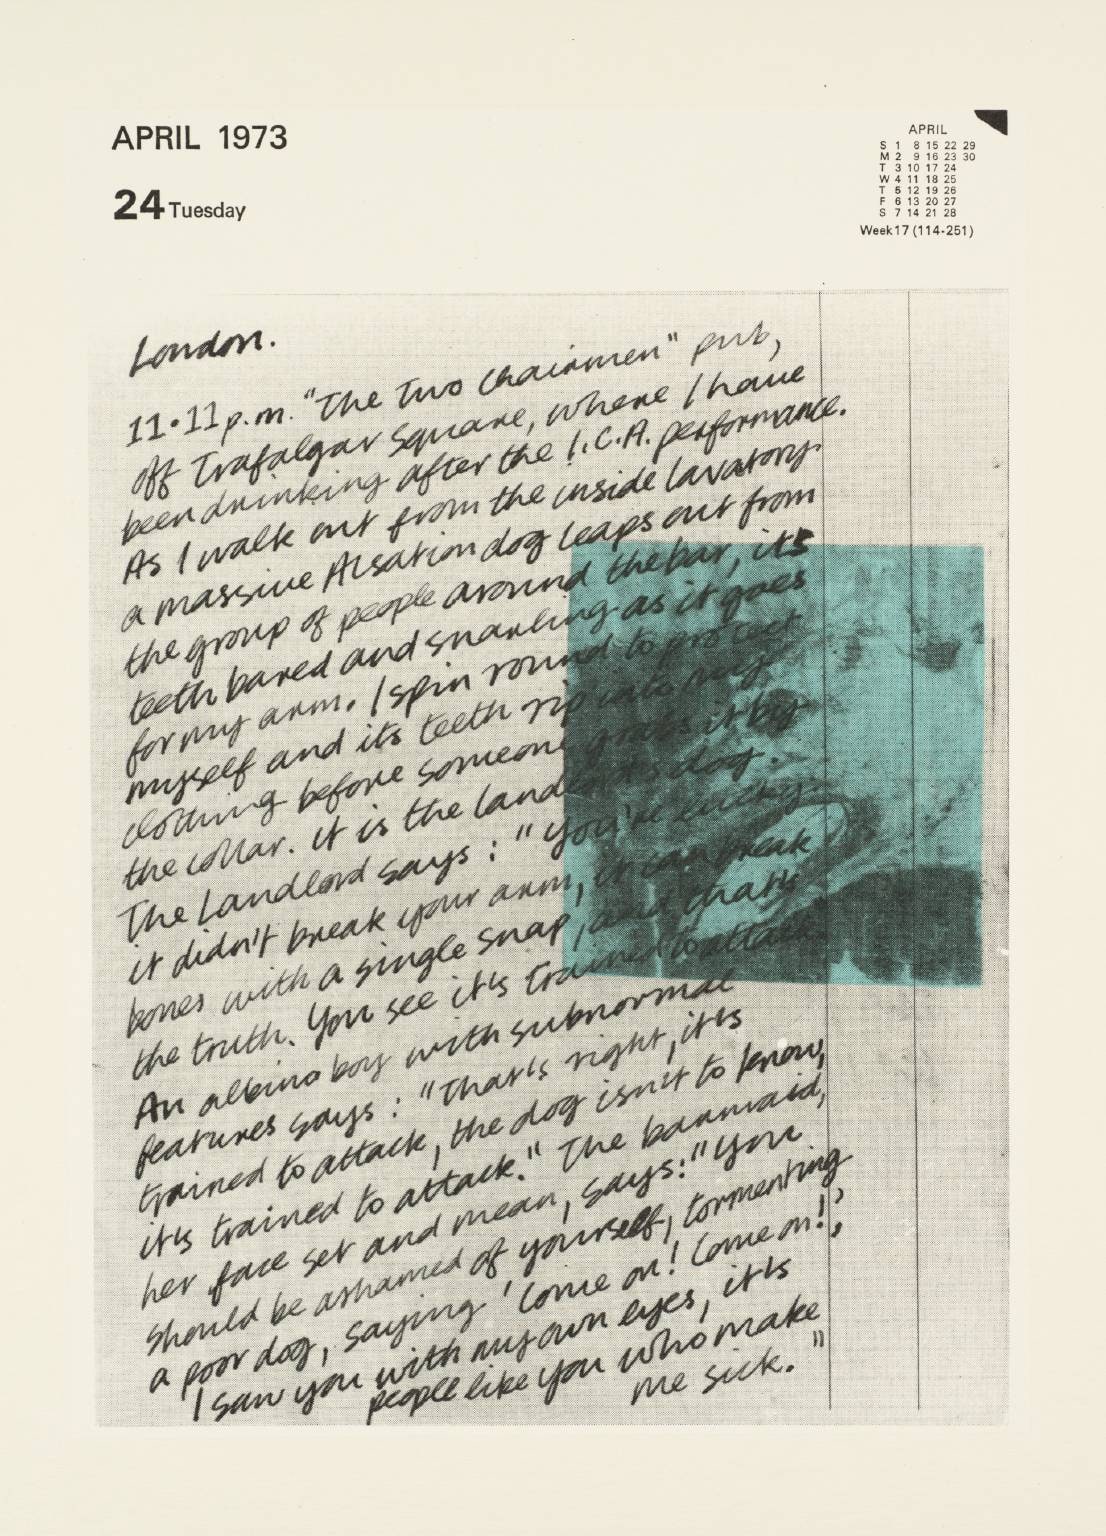 APRIL 1973
24 Tuesday
APRIL
S 1 8 15 22 29
M 2 9 16 23 30
T 3 10 17 24
W 4 11 18 25
T 5 12 19 26
F 6 13 20 27
S 7 14 21 28
Week 17 (114-251)
London.
11.11 p.m. "The Two Chairmen" pub,
off Trafalgar Square, where I have
been drinking after the I.C.A. performance.
As I walk out from the inside lavatory
a massive Alsation dog leaps out from
the group of people around the bar, its
teeth bared and snarling as it goes
for my arm. I spin round to protect
myself and its teeth rip into my
clothing before someone grabs it by
the collar. It is the landlord's dog.
The Landlord says: "You're lucky
it didn't break your arm, it can break
bones with a single snap, and that's
the truth. You see it's trained to attack."
An albino boy with subnormal
features says: "That's right, it's
trained to attack, the dog isn't to know,
it's trained to attack." The barmaid,
her face set and mean, says: "You
should be ashamed of yourself, tormenting
a poor dog, saying 'Come on! Come on!',
I saw you with my own eyes, it's
people like you who make
me sick."